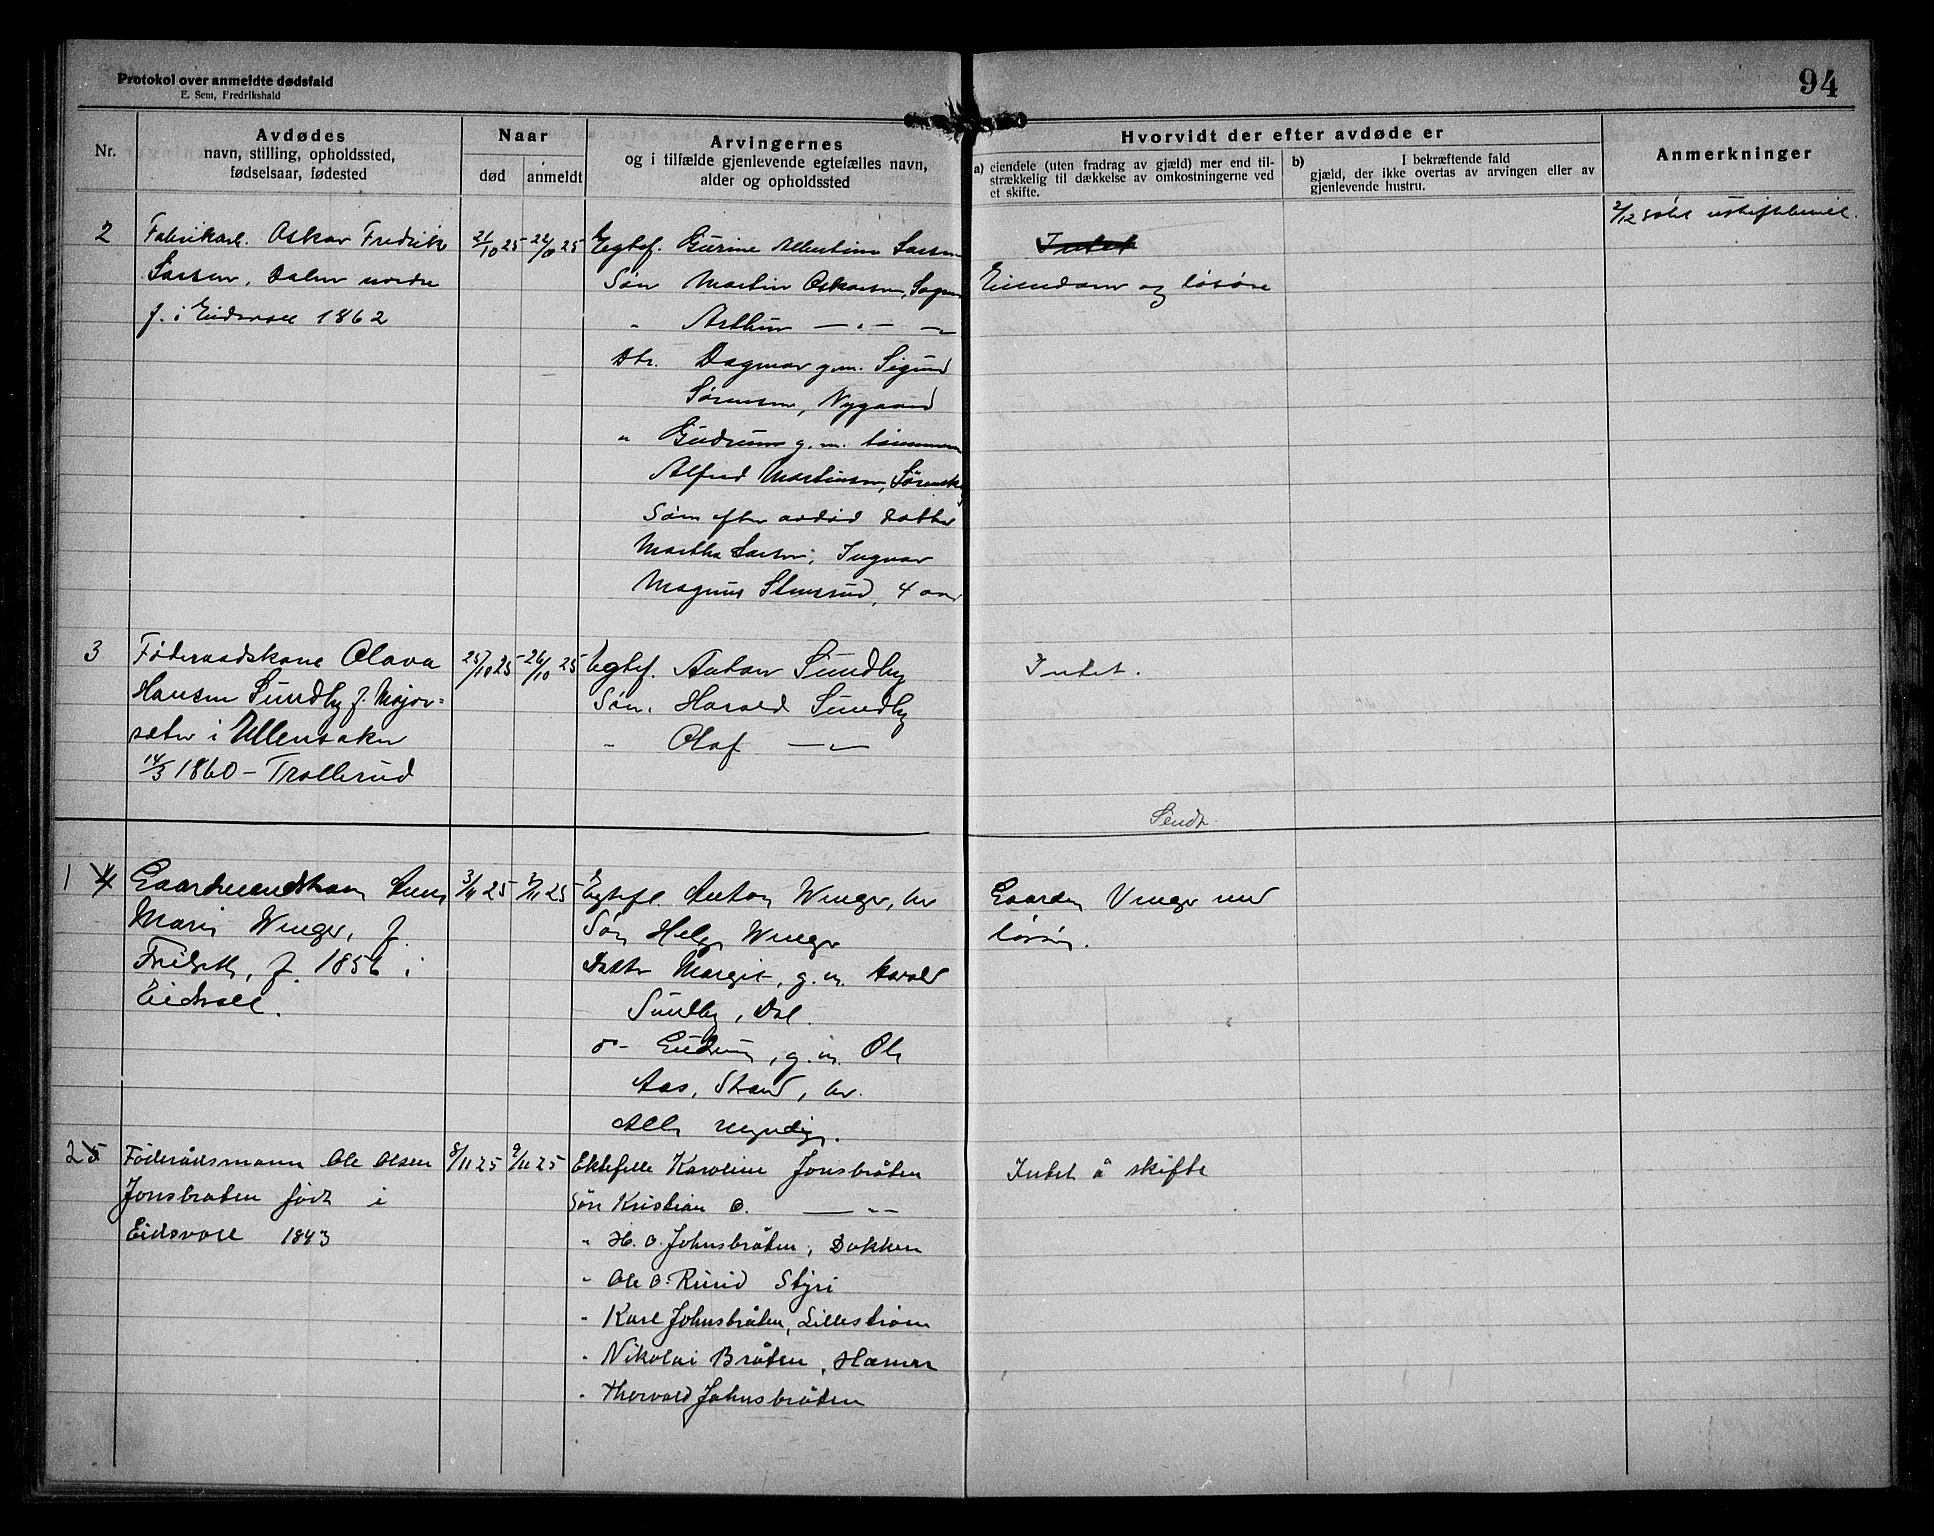 Protokol over anmeldte dødsfald
E. Sem, Fredrikshald
94
Nr.
Avdødes
navn, stilling, opholdssted,
fødselsaar, fødested
Naar
død
anmeldt
Arvingernes
og i tilfælde gjenlevende egtefælles navn,
alder og opholdssted
Hvorvidt der efter avdøde er
a) eiendele (uten fradrag av gjæld) mer end til-
strækkelig til dækkelse av omkostningerne ved
et skifte.
b) I bekræftende fald
gjæld, der ikke overtas av arvingen eller av
gjenlevende hustru.
Anmerkninger
2
Fabrikarb. Oskar Fredrik
Larsen, Dalen nordre
f. i Eidsvoll 1862
21/10 25
22/10 25
Egtef. Gurine Albertine Larsen
Søn Martin Oskarsen,
" Arthur — " —
Dtr. Dagmar g.m. Sigurd
Sørensen, Nygaard
" Gudrun g.m.
Alfred Martinsen,
Søn efter avdød datter
Martha Larsen; Ingvar
Magnus Stensrud, 4 aar
Intet
Eiendom og løsøre
2/12
3
Føderaadskone Olava
Hansen Sundby f. Mojor-
sæter i Ullensaker
14/3 1860 - Trollerud
25/10 25
26/10 25
Egtef. Anton Sundby
Søn. Harald Sundby
" Olaf — " —
Intet.
Sendt.
1 4
Gaardmandskone Anna
Marie Winger, f.
f. 1856 i
Eidsvoll.
3/11 25
7/11 25
Egtefl. Anton Winger, her
Søn Helge Winger
Datter Margit, g.m. Harald
Sundby, Dal.
o- Gudrun, g.m. Ole
Aas, Strand, her.
Alle myndige.
Gaarden Vinger med
løsøre.
2 5
Føderådsmann Ole Olsen
Jonsbråten født i
Eidsvoll 1843
8/11 25
9/11 25
Ektefelle Karoline Jonsbråten
Søn Kristian O. — " —
" H. O. Johnsbråten, Dokken
" Ole O. Rusid Styri
" Karl Johnsbråten, Lillestrøm
" Nikolai Bråten, Hamar
" Thorvald Johnsbråten
Intet å skifte